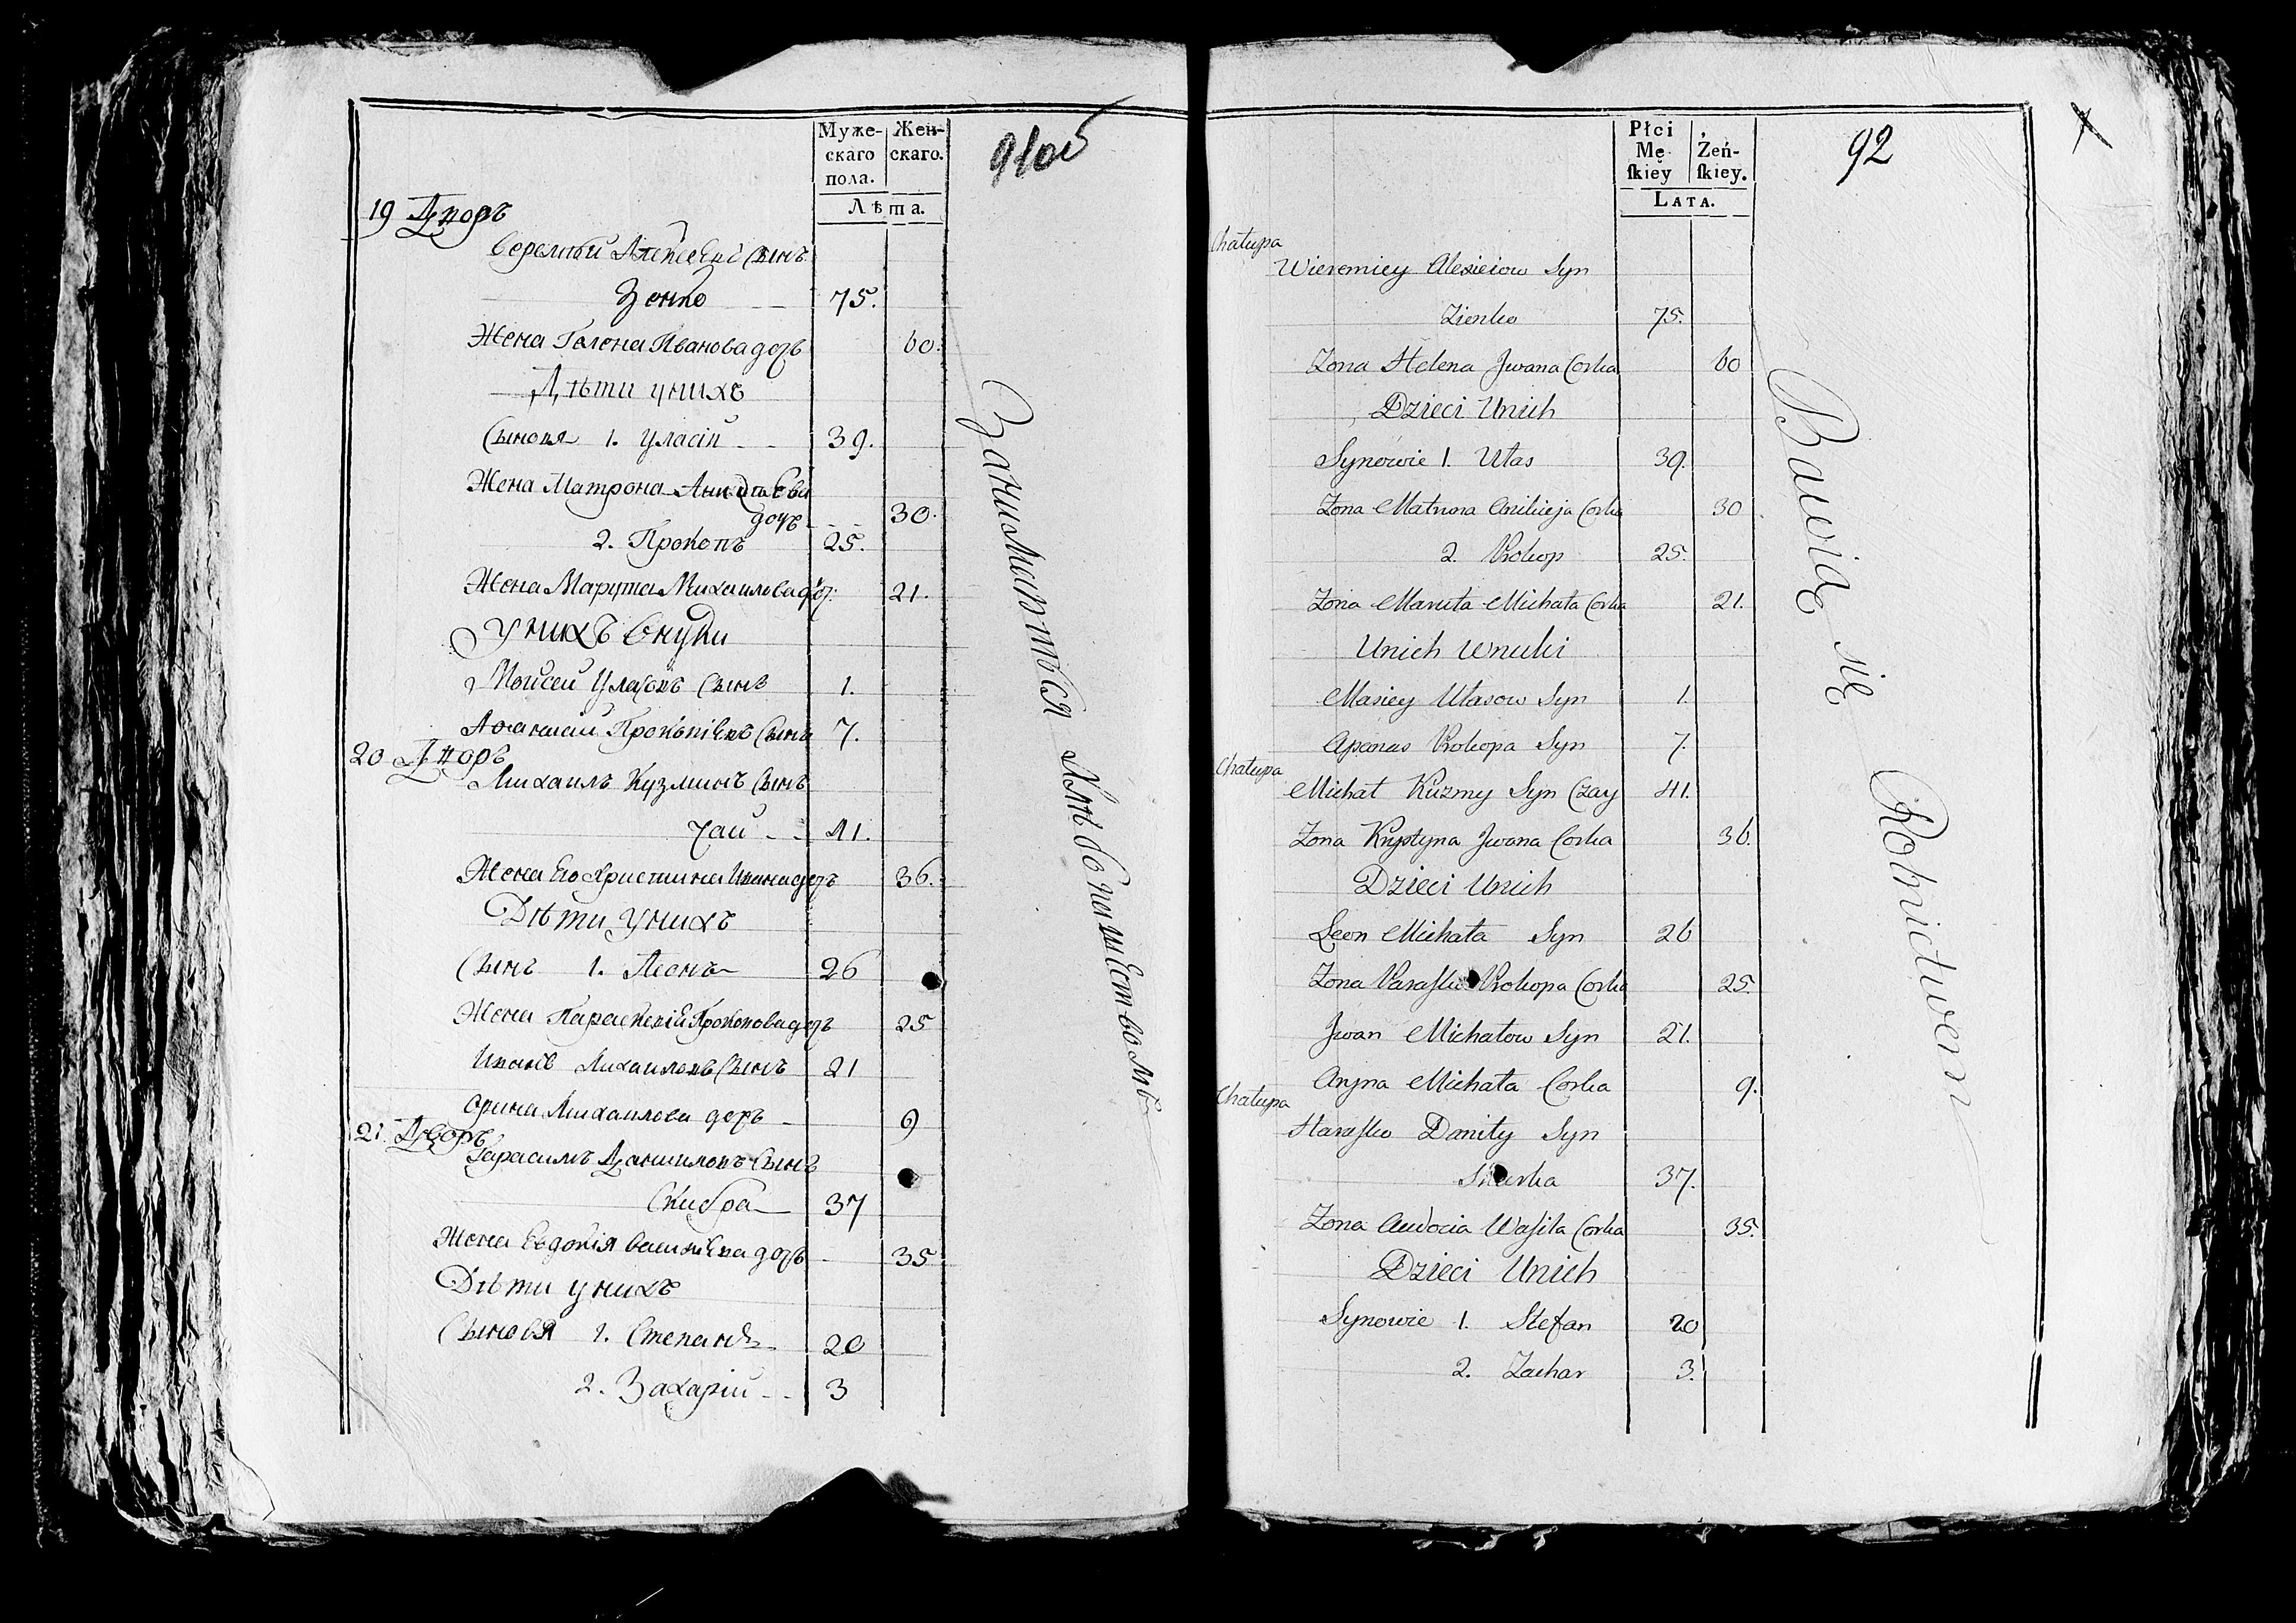 Муже-
скаго
пола.
Жен-
скаго.
Лѣта.
91об
19 Дворъ
Веремѣй Алексѣевъ Сынъ
Зенко 75.
Жена Галена Иванова дочь 60.
Дѣти у нихъ
Сыновя 1. Уласій 39.
Жена Матрона
дочъ 30.
2. Прокопъ 25.
Жена Марута Михаилова доч: 21.
У нихъ внуки
Моисей Уласовъ Сынъ 1.
Афанасій Прокопіевъ Сынъ 7.
20 Дворъ
Михаилъ Кузминъ Сынъ
Чай 41.
Жена Его Христина Ивана дочь 36.
Дѣти у нихъ
Сынъ 1. Леонъ 26
Жена Параскевія Прокопова дочь 25
Иванъ Михаиловъ Сынъ 21
Орина Михаилова дочь 9
21. Дворъ
Гарасимъ Даниловъ Сынъ
Скибра 37
Жена Евдокія Василіева дочь 35
Дѣти у нихъ
Сыновя 1. Степанъ 20
2. Захарій 3
Занимаются хлѣбопашествомъ
Płci
Mę-
ſkiey
Żeń-
ſkiey.
LATA.
92
Chałupa
Wieremiey Alexieiow Syn
Zienko 75.
Zona Helena Jwana Corka 60
Dzieci Unich
Synowie 1. Ułas 39.
Zona Matrona Anikieja Corka 30
2. Prokop 25.
Zona Maruta Michała Corka 21.
Unich Wnuki
Masiey Ułasow Syn 1.
Apanas Prokopa Syn 7.
Chałupa
Michał Kuzmy Syn Czay 41.
Zona Krystyna Jwana Corka 36.
Dzieci Unich
Leon Michała Syn 26
Zona Paraſka Prokopa Corka 25.
Jwan Michałow Syn 21.
Aryna Michała Corka 9.
Chałupa
Haraſko Daniły Syn
37.
Zona Awdocia Waſila Corka 35.
Dzieci Unich
Synowie 1. Stefan 20
2. Zachar 3.
Bawią się Rolnictwem